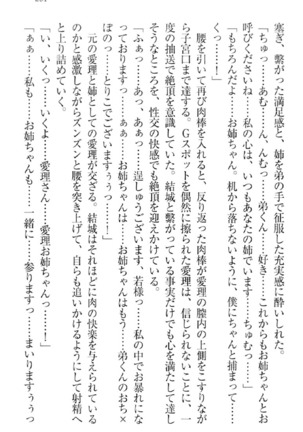 塞ぎ、繋がった満足感と、姉を弟の手で征服した充実感に酔い
「ちゅっ……あむ……ん、弟くん……好き……これからもお姉ちゃんとお
呼びくださいね……私の心は、いつもあなたの姉でいますっ……ちゅむっ…」
「もちろんだよ……お姉ちゃん。机から落ちないように、僕にちゃんと捕まって…
くっ……！」
腰を引いて再び肉棒を入れると、反り返った肉棒が愛理の膣内の上側をこすりなが
ら子宮口まで達する。Ｇスポットを偶然に擦られた愛理は、信じられないことに一
度の抽送で絶頂を意識していた。結城と繋がっている事実だけでも心を満たして達し
そうなところを、性交の快感でも絶頂を迎えかけている。
「ふぁっ……あっ……逞しゅうございます、若様っ……私の中でお暴れにな
っておりますっ……あぁぁっ……お姉ちゃんはもう……弟くんのおち×
ぽっ……とりこでございますぅぅっ……！」
元の愛理と姉としての愛理が交ざる。結城はそれほどに肉の快楽を与えられている
と感激しながらズンズンと腰を突き上げて、自らも追いかけるようにして射精へ
と上り詰めていく。
「い、いくっ……いくよ……愛理さん……愛理お姉ちゃんっ……！」
「ぁぁっ……私も……お姉ちゃんも……一緒に……参りますぅぅっ……まいりますぅぅっ